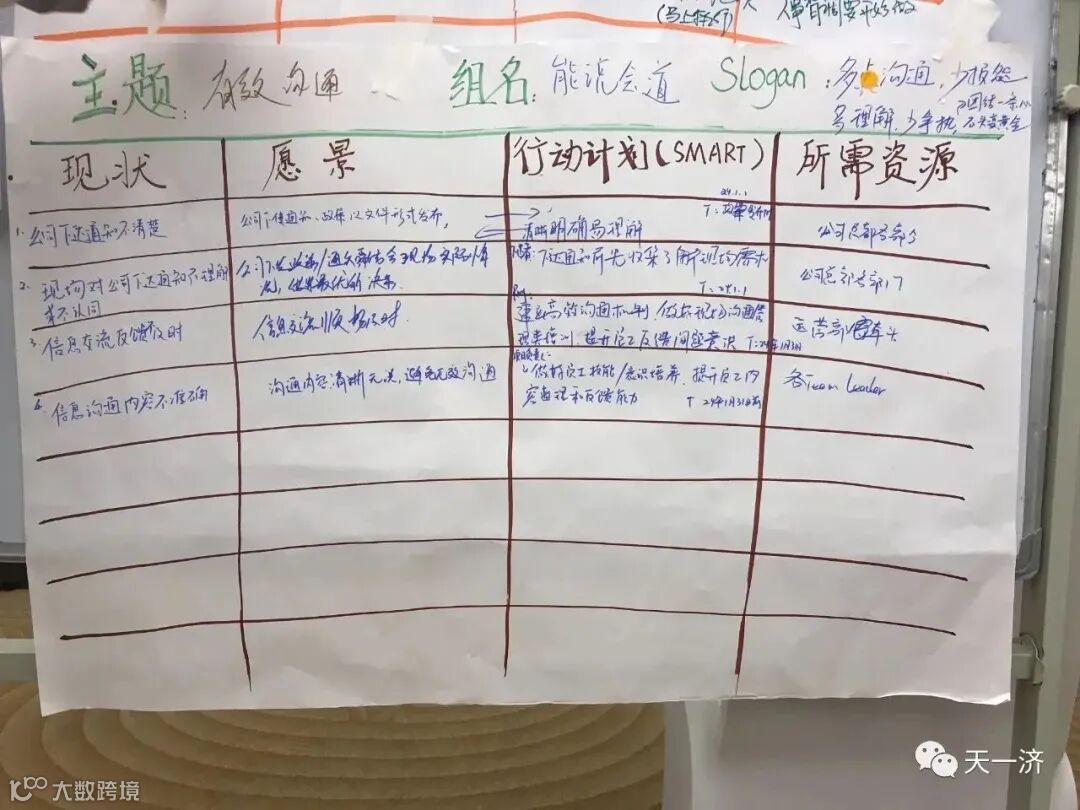 (马上执行)
主题：有效沟通 组名：能说会道 Slogan：多点沟通，少抱怨
多理解，少争执，
现状 愿景 行动计划(SMART) 所需资源
1. 公司下达通知不清楚
公司下达通知、政策以文件形式分布，
清晰明确易理解
T：
24.1.1
公司总部各部门
2. 现场对公司下达通知不理解
或不认同
公司下达政策/通知
情况，做出最优的决策
下达通知前先收集了解现场需求
T：24.1.1
公司总部各部门
3. 信息交流反馈及时
信息交流顺畅及时
建立高效沟通机制，做好现场沟通管
理类培训，提升员工反馈问题意识 T：24年1月3日
运营部
4. 信息沟通内容不准确
沟通内容清晰无误，避免无效沟通
做好员工技能/意识培养，提升员工内
容整理和反馈能力 T 24年1月31日前
各Team Leader
天一济
10100 大数跨境